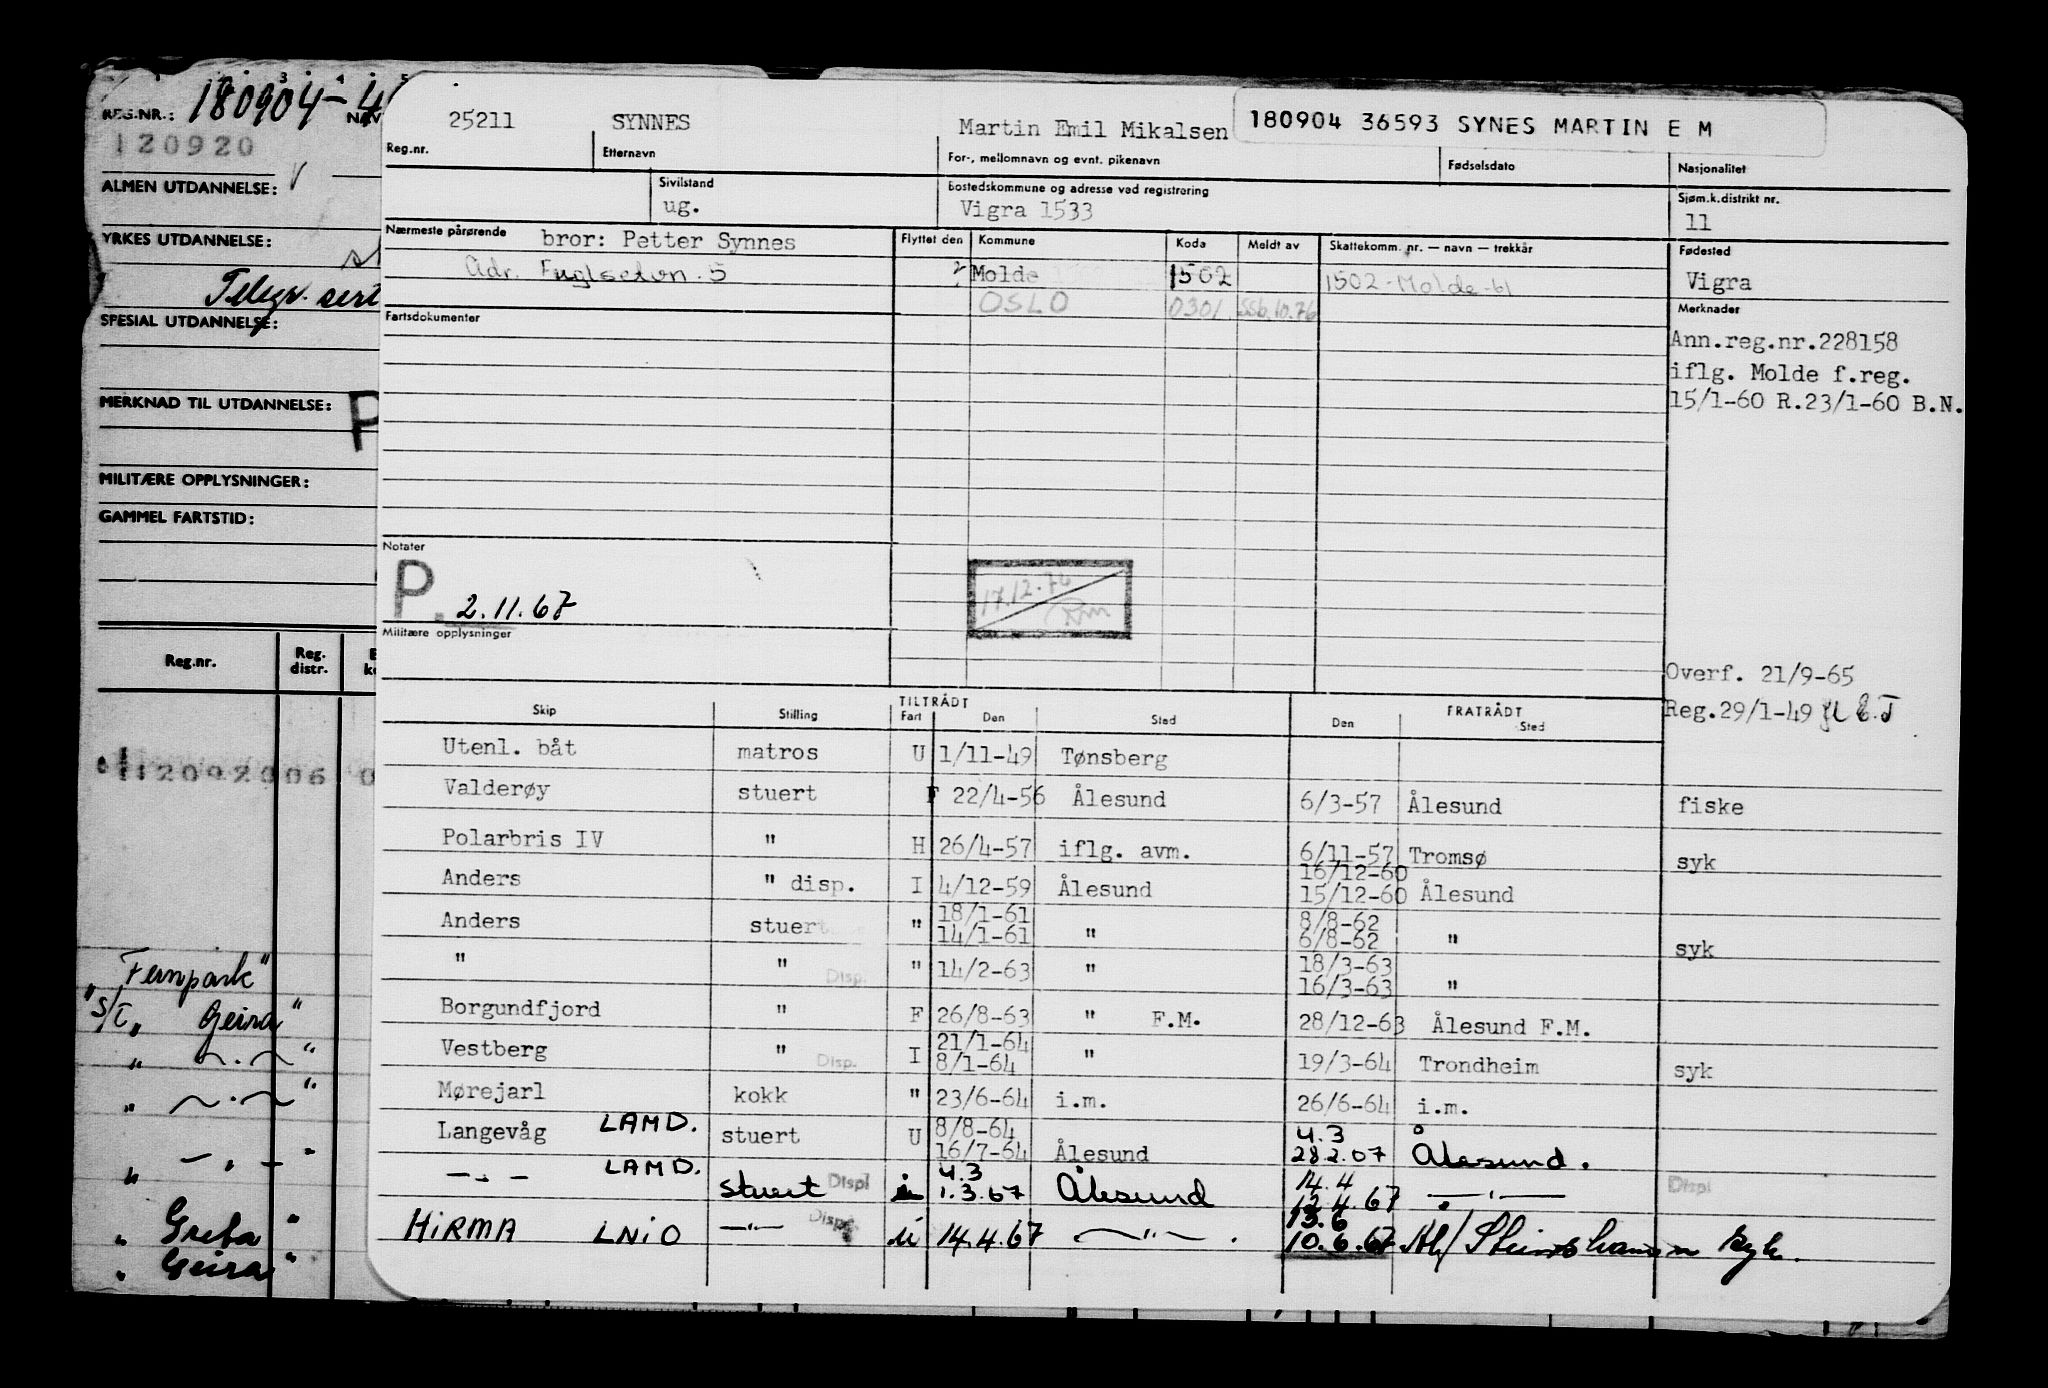 REG.NR.: 180904-4
NAV
120920
ALMEN UTDANNELSE:
YRKES UTDANNELSE:
Telegr. sert
SPESIAL UTDANNELSE:
MERKNAD TIL UTDANNELSE:
P
MILITÆRE OPPLYSNINGER:
GAMMEL FARTSTID:
Reg.nr. Reg. distr.
12092006 0
Fernpark"
"S/T „ Geira"
„ —.— "
„ —.— "
„ —.— "
„ Greta "
„ Geira "
25211 SYNNES Martin Emil Mikalsen 180904 36593 SYNES MARTIN E M
Reg.nr. Etternavn For-, mellomnavn og evnt. pikenavn Fødselsdato Nasjonalitet
Sivilstand Bostedskommune og adresse ved registrering Sjøm.k.distrikt nr.
ug. Vigra 1533 11
Nærmeste pårørende bror: Petter Synnes Flyttet den Kommune Kode Meldt av Skattekomm. nr. — navn — trekkår Fødested
Adr. Fuglsetvn. 5 Molde 1502 1502-Molde-61 Vigra
OSLO 0301 SSb.10.76
Fartsdokumenter Merknader
Ann.reg.nr.228158
iflg. Molde f.reg.
15/1-60 R.23/1-60 B.N.
Notater
P. 2.11.67
17.12.74
Militære opplysninger
Overf. 21/9-65
Reg.29/1-49
TILTRÅDT FRATRÅDT
Skip Stilling Fart Den Sted Den Sted
Utenl. båt matros U 1/11-49 Tønsberg
Valderøy stuert F 22/4-56 Ålesund 6/3-57 Ålesund fiske
Polarbris IV " H 26/4-57 iflg. avm. 6/11-57 Tromsø syk
16/12-60
Anders " disp. I 4/12-59 Ålesund 15/12-60 Ålesund
18/1-61 8/8-62
Anders stuert " 14/1-61 " 6/8-62 " syk
18/3-63
" " Disp. " 14/2-63 " 16/3-63 "
Borgundfjord " F 26/8-63 " F.M. 28/12-63 Ålesund F.M.
21/1-64
Vestberg " Disp. I 8/1-64 " 19/3-64 Trondheim syk
Mørejarl kokk " 23/6-64 i.m. 26/6-64 i.m.
8/8-64 4.3
Langevåg LAMD. stuert U 16/7-64 Ålesund 28.2.67 Ålesund.
4.3 14.4
—.— LAMD. stuert Displ 1.3.67 Ålesund 12.4.67 —"— Displ
13.6
HIRMA LNIO —"— Disp. 14.4.67 —"—. 10.6.67